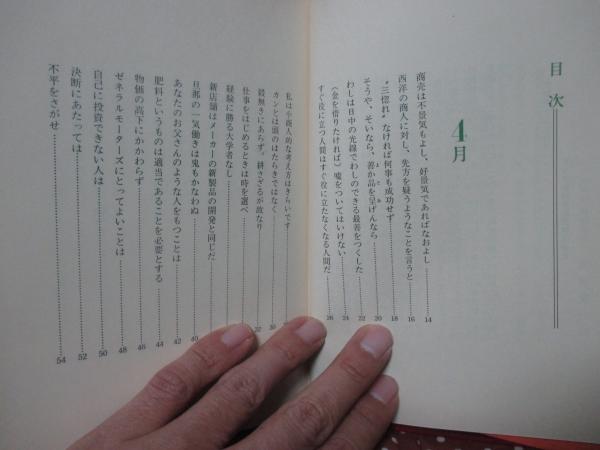 目次
4月
商売は不景気もよし、好景気であればなおよし 14
西洋の商人に対し、先方を疑うようなことを言うと 16
“三惚れ”なければ何事も成功せず 18
そうや、そいなら、善か品を呈げんなら 20
わしは日中の光線でわしのできる最善をつくした 22
（金を借りたければ）嘘をついてはいけない 24
すぐ役に立つ人間はすぐ役に立たなくなる人間だ 26
私は小商人的な考え方はきらいです
カンとは頭のはたらきではなく 30
穀無きにあらず。耕さざるが故なり 32
仕事をはじめるときは時を選べ
経験に勝る大学者なし
新店舗はメーカーの新製品の開発と同じだ
旦那の一気働きは鬼もかなわぬ 40
あなたのお父さんのような人をもつことは 42
肥料というものは適当であることを必要とする 44
物価の高下にかかわらず 46
ゼネラルモーターズにとってよいことは 48
自己に投資できない人は 50
決断にあたっては 52
不平をさがせ 54